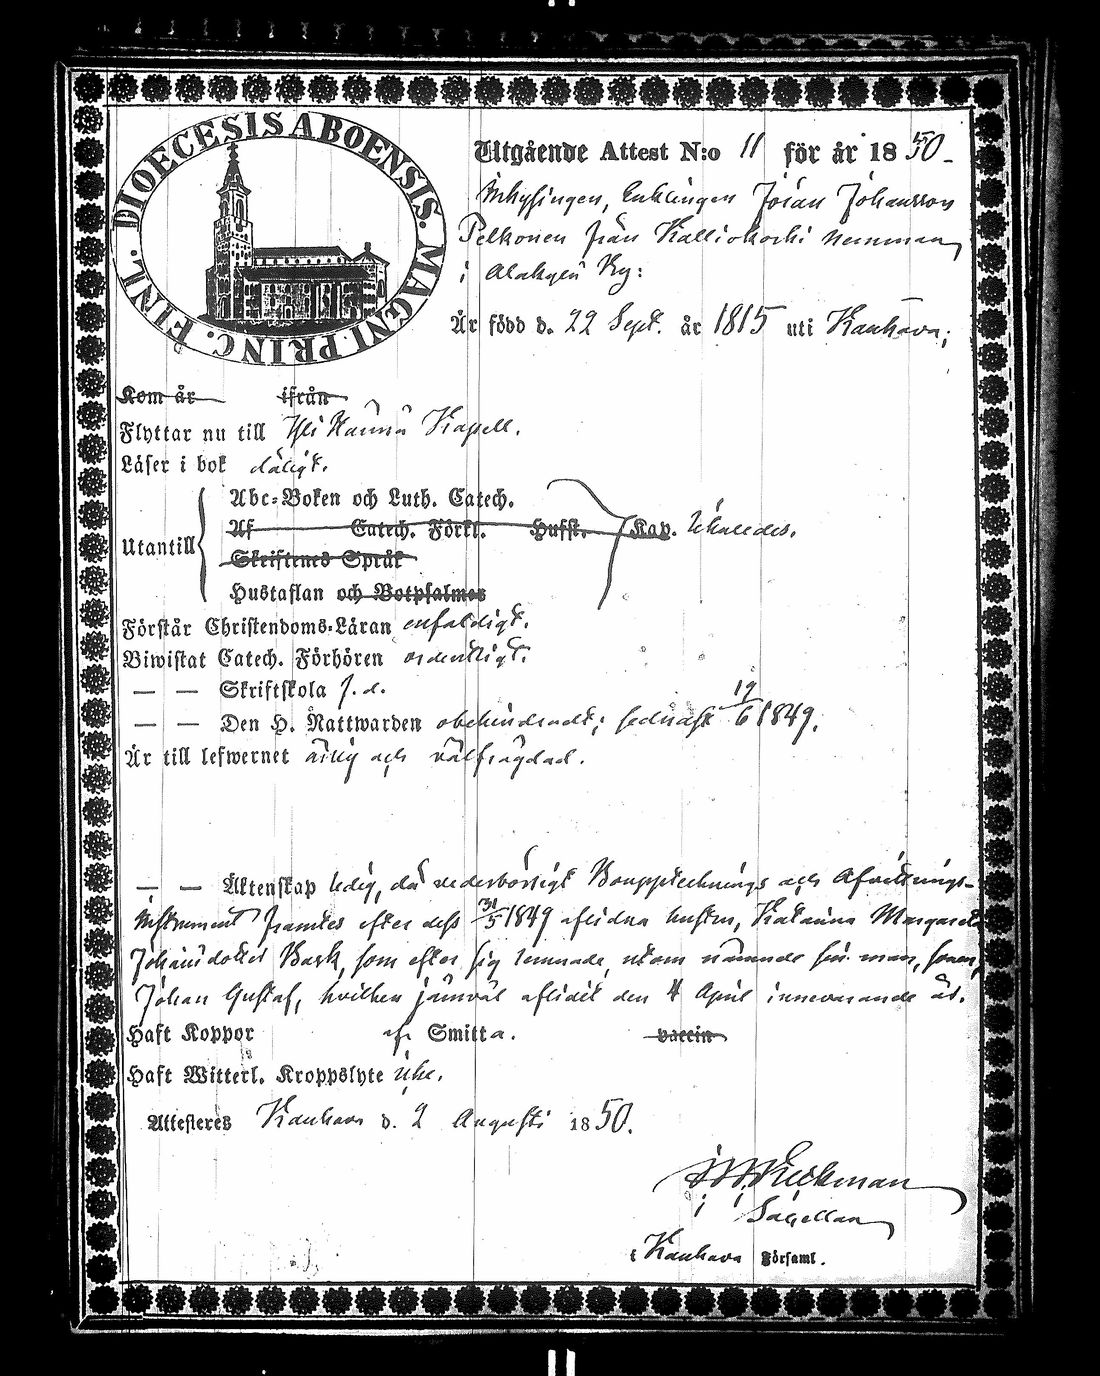 DIOECESIS ABOENSIS. MAGNI PRINC. FINL.
Utgående Attest N:o 11 för år 1850.
Inhysingen, Enklingen Johan Johansson
Pelkonen från Kalliokoski nemman,
i Alakylä By:
Är född d. 22 Sept. år 1815 uti Kauhava;
Kom år ifrån
Flyttar nu till Yli Härmä Kapell.
Läser i bok dåligt.
Abc-Boken och Luth. Catech.
Utantill Af Catech. Förkl. Hufst. Kap. likaledes.
Skriftenes Språk
Hustaflan och Botpsalmer
Förstår Christendoms-Läran enfaldigt.
Biwistat Catech. Förhören ordentligt.
— — Skriftskola J. d.
— — Den H. Nattwarden obehindradt; sednast 17/6 1849.
Är till lefwernet ärlig och välfrägdad.
— — Äktenskap ledig, då vederbörligt Bouppteknings och Afvittrings-
Instrument framtes efter dess 31/5 1849 aflidna hustru, Katarina Margareta
Johansdotter Bask, som efter sig lemnade, utom nämnde sin man, sonen,
Johan Gustaf, hvilken jämväl aflidit den 4 April innevarande år.
Haft Koppor af Smitta. vaccin
Haft Witterl. Kroppslyte icke.
Attesteres Kauhava d. 2 Augusti 1850.
Sacellan
i Kauhava Församl.